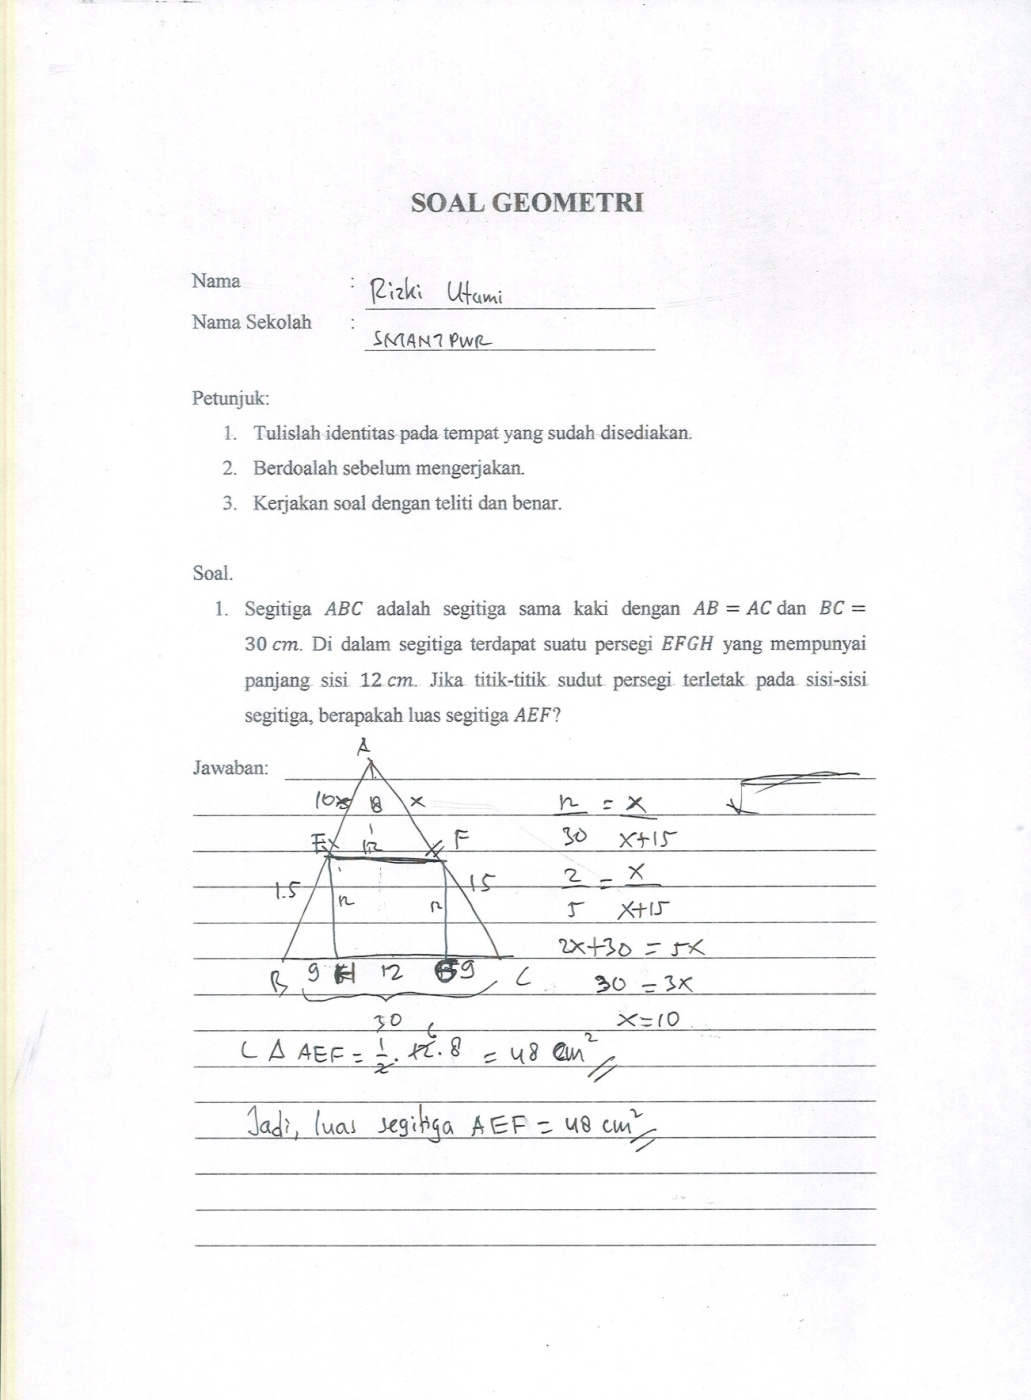 SOAL GEOMETRI
Nama : Rizki Utami
Nama Sekolah : SMAN7 PWR
Petunjuk:
1. Tulislah identitas pada tempat yang sudah disediakan.
2. Berdoalah sebelum mengerjakan.
3. Kerjakan soal dengan teliti dan benar.
Soal.
1. Segitiga ABC adalah segitiga sama kaki dengan AB = AC dan BC =
30 cm. Di dalam segitiga terdapat suatu persegi EFGH yang mempunyai
panjang sisi 12 cm. Jika titik-titik sudut persegi terletak pada sisi-sisi
segitiga, berapakah luas segitiga AEF?
Jawaban:
A
10 8 x
E 12 F
15 12 12 15
B 9 H 12 G 9 C
30
12/30 = x/x+15
2/5 = x/x+15
2x+30 = 5x
30 = 3x
x=10
L Δ AEF = 1/2 . 12 . 8 = 48 cm²
6
Jadi, luas segitiga AEF = 48 cm²